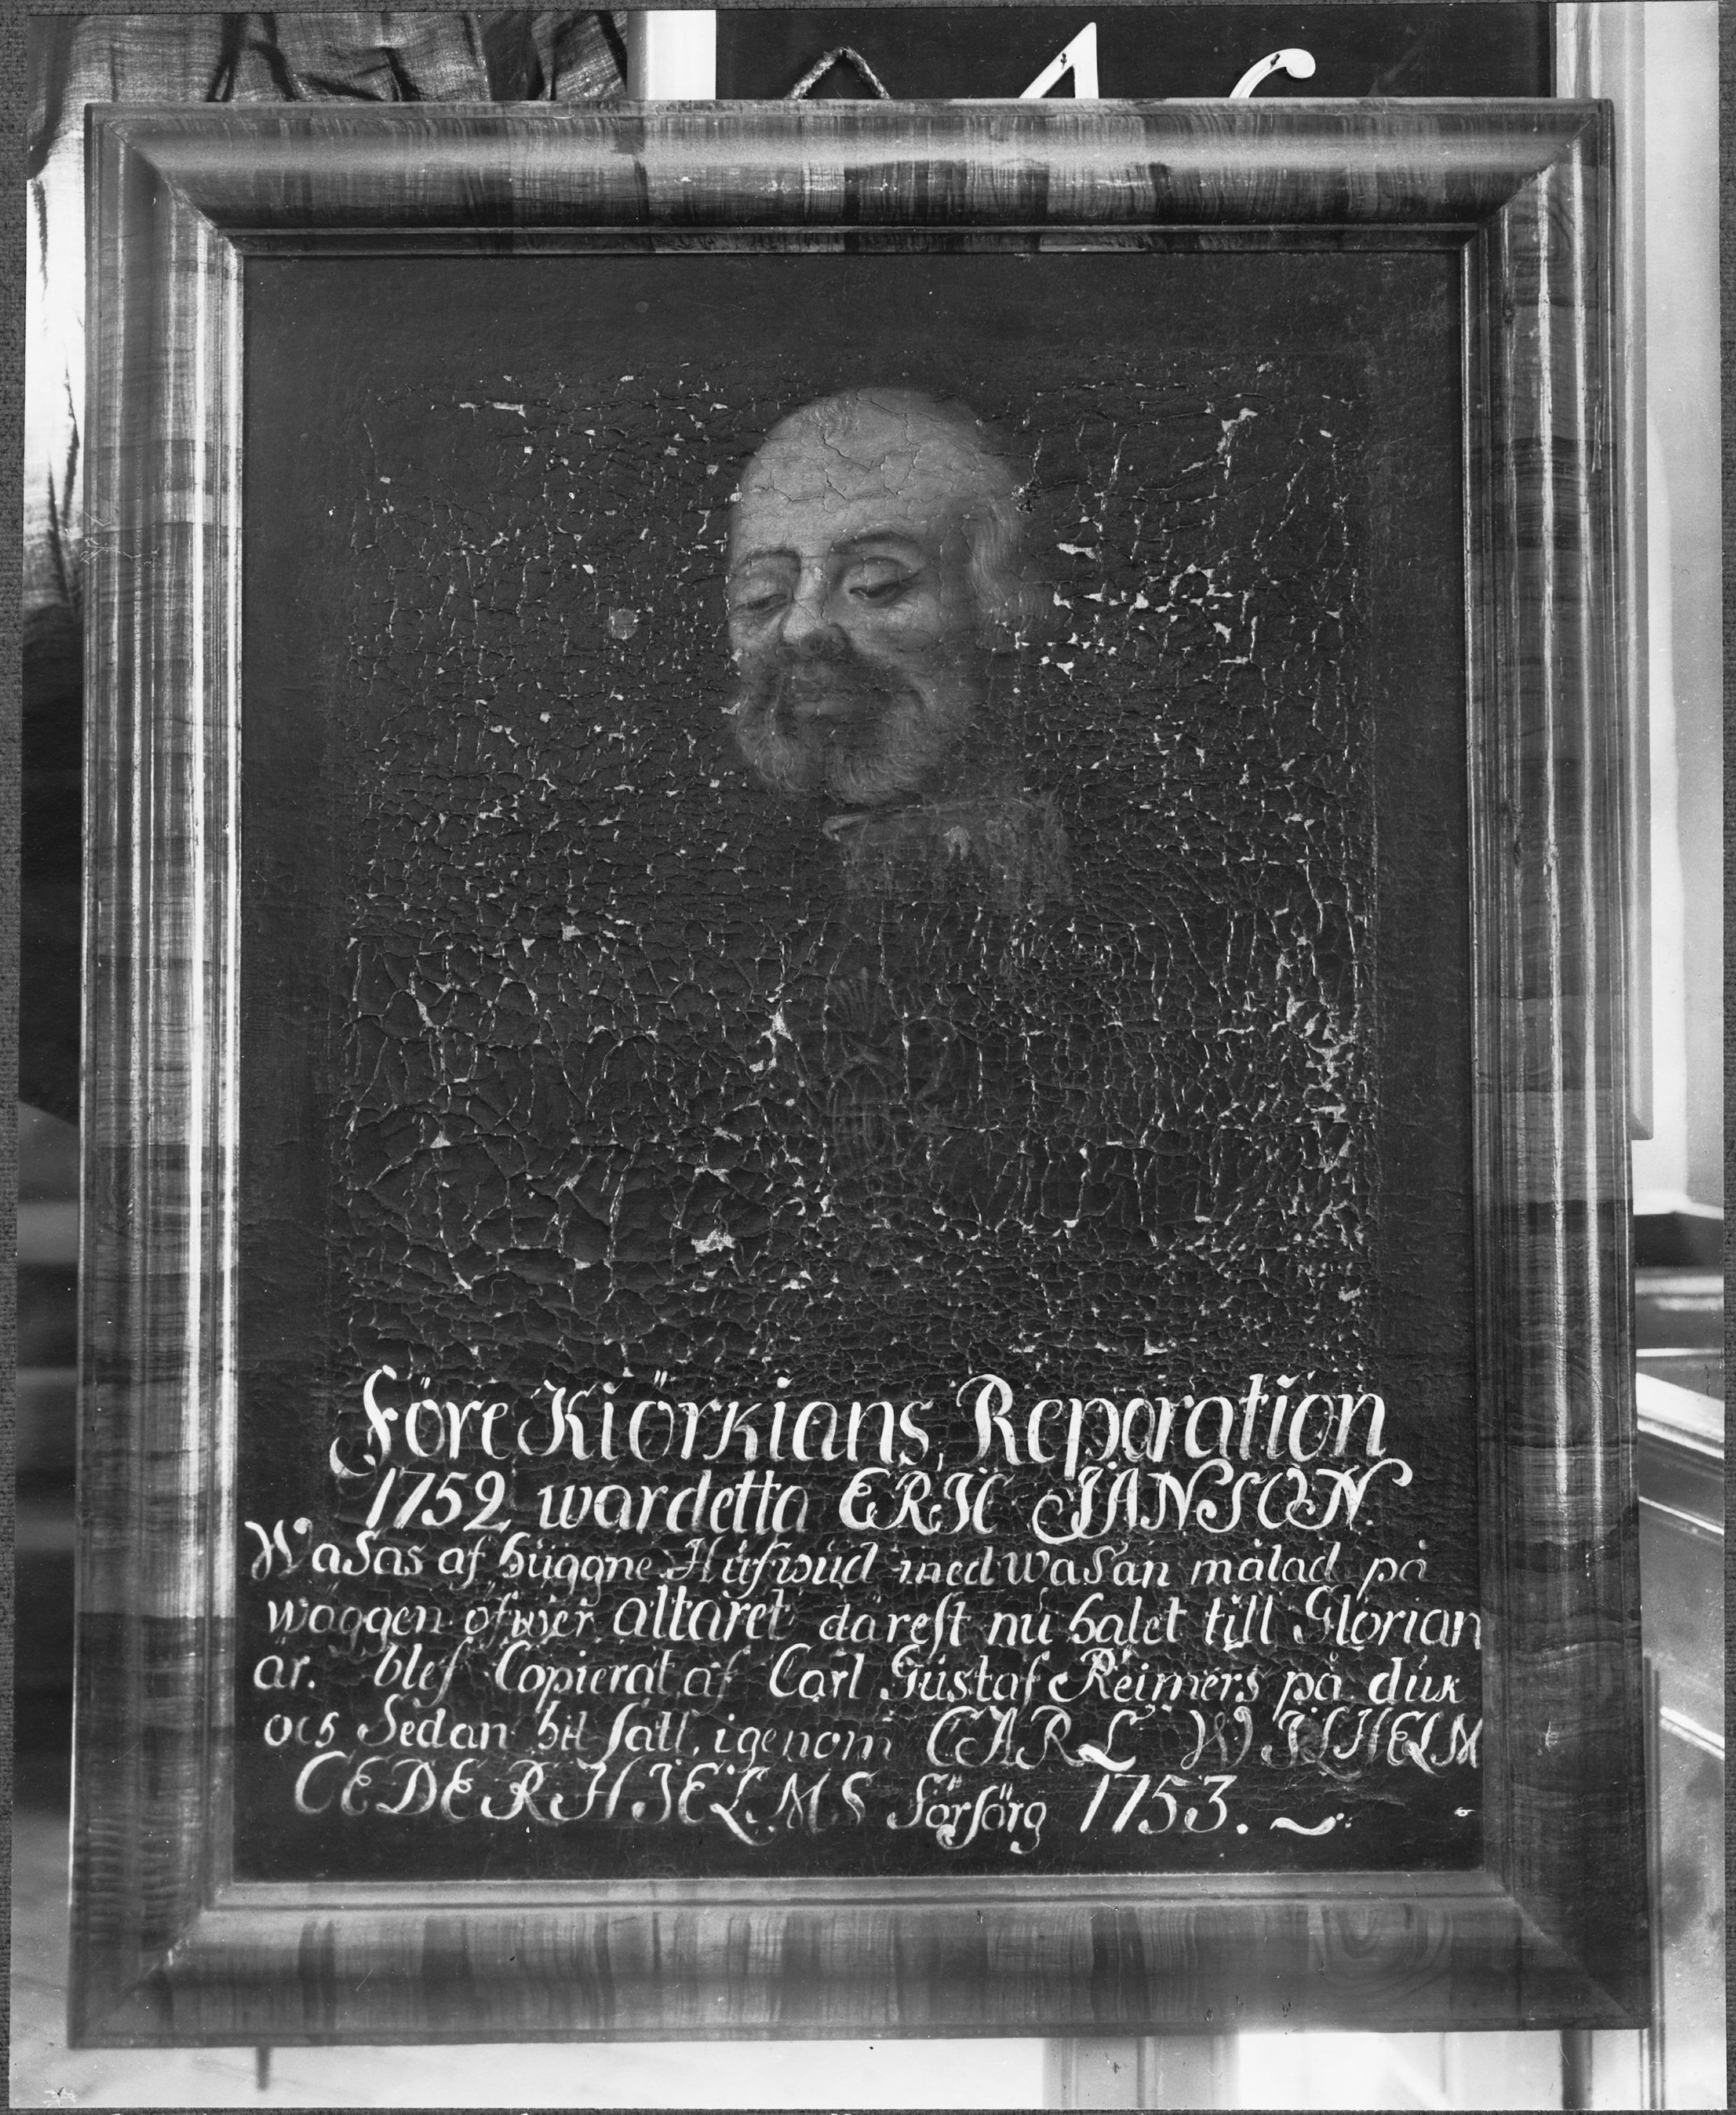 A6
Före Kiörkians, Reparation
1752, wardetta ERIC JANSON.
Wasas af huggne Hufwud med wasan målad på
wäggen öfwer altaret därest nu halet till Glorian
är. blef Copierat af Carl Gustaf Reimers på duk
och Sedan hit satt, igenom CARL WILHELM
CEDERHIELMS försörg 1753.